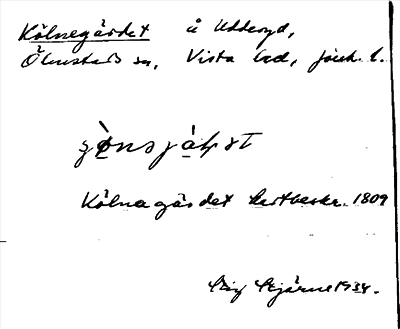 Kölnegärdet å Udderyd,
Ölmstads sn, Vista hd, Jönk. l.
Kölnagärdet kartbeskr. 1809
Stig Stjärne 1934.